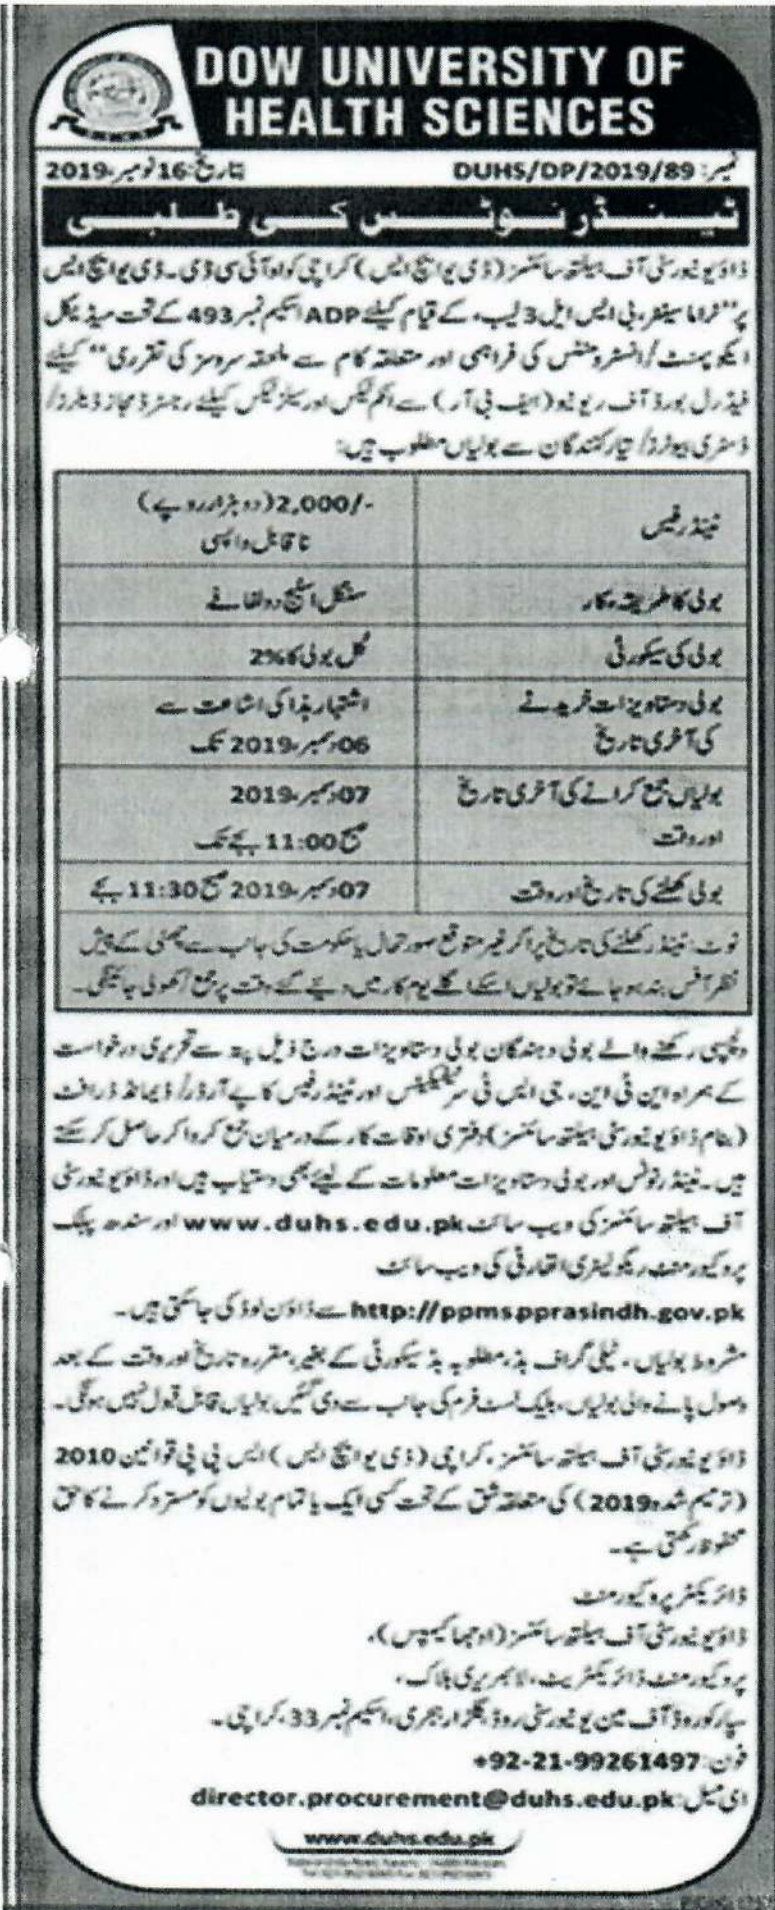 DOW UNIVERSITY OF
HEALTH SCIENCES
نمبر: DUHS/DP/2019/89 بتاریخ: 16 نومبر، 2019
ٹینڈر نوٹس کی طلبی
ڈاؤ یونیورسٹی آف ہیلتھ سائنسز (ڈی یو ایچ ایس) کراچی کو او آئی سی ڈی۔ ڈی یو ایچ ایس
پر "ٹراما سینٹر، بی ایس ایل 3 لیب، کے قیام کیلئے ADP اسکیم نمبر 493 کے تحت میڈیکل
ایکوپمنٹ/انسٹرومنٹس کی فراہمی اور متعلقہ کام سے ملحقہ سروسز کی تقرری" کیلئے
فیڈرل بورڈ آف ریونیو (ایف بی آر) سے انکم ٹیکس اور سیلز ٹیکس کیلئے رجسٹرڈ مجاز ڈیلرز/
ڈسٹری بیوٹرز/ تیار کنندگان سے بولیاں مطلوب ہیں:
ٹینڈر فیس 2,000/- (دو ہزار روپے)
نا قابل واپسی
بولی کا طریقہ کار سنگل اسٹیج دو لفافے
بولی کی سیکورٹی کُل بولی کا 2%
بولی دستاویزات خریدنے اشتہار ہذا کی اشاعت سے
کی آخری تاریخ 06 دسمبر، 2019 تک
بولیاں جمع کرانے کی آخری تاریخ 07 دسمبر، 2019
اور وقت صبح 11:00 بجے تک
بولی کھلنے کی تاریخ اور وقت 07 دسمبر، 2019 صبح 11:30 بجے
نوٹ: ٹینڈر کھلنے کی تاریخ پر اگر غیر متوقع صورتحال یا حکومت کی جانب سے چھٹی کے پیش
نظر آفس بند ہو جائے تو بولیاں اسکے اگلے یوم کار میں دیئے گئے وقت پر جمع / کھولی جائیگی۔
دلچسپی رکھنے والے بولی دہندگان بولی دستاویزات درج ذیل پتہ سے تحریری درخواست
کے ہمراہ این ٹی این، جی ایس ٹی سرٹیفکیٹس اور ٹینڈر فیس کا پے آرڈر/ ڈیمانڈ ڈرافٹ
(بنام ڈاؤ یونیورسٹی ہیلتھ سائنسز) دفتری اوقات کار کے درمیان جمع کروا کر حاصل کر سکتے
ہیں۔ ٹینڈر نوٹس اور بولی دستاویزات معلومات کے لیئے بھی دستیاب ہیں اور ڈاؤ یونیورسٹی
آف ہیلتھ سائنسز کی ویب سائٹ www.duhs.edu.pk اور سندھ پبلک
پروکیورمنٹ ریگولیٹری اتھارٹی کی ویب سائٹ
http://ppms.pprasindh.gov.pk سے ڈاؤن لوڈ کی جاسکتی ہیں۔
مشروط بولیاں، ٹیلی گراف بڈ، مطلوبہ بڈ سیکورٹی کے بغیر، مقررہ تاریخ اور وقت کے بعد
وصول پانے والی بولیاں، بلیک لسٹ فرم کی جانب سے دی گئیں بولیاں قابل قبول نہیں ہونگی۔
ڈاؤ یونیورسٹی آف ہیلتھ سائنسز، کراچی (ڈی یو ایچ ایس) ایس پی پی قوانین 2010
(ترمیم شدہ 2019) کی متعلقہ شق کے تحت کسی ایک یا تمام بولیوں کو مسترد کرنے کا حق
محفوظ رکھتی ہے۔
ڈائریکٹر پروکیورمنٹ
ڈاؤ یونیورسٹی آف ہیلتھ سائنسز (اوجھا کیمپس)،
پروکیورمنٹ ڈائریکٹریٹ، لائبریری بلاک،
سپارکو روڈ آف مین یونیورسٹی روڈ، گلزار ہجری، اسکیم نمبر 33، کراچی۔
فون: 99261497-21-92+
ای میل: director.procurement@duhs.edu.pk
www.duhs.edu.pk